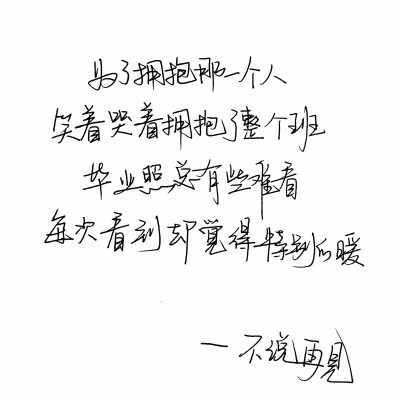 为了拥抱那一个人
笑着哭着拥抱了整个班
毕业照总有些难看
每次看到却觉得特别的暖
—不说再见